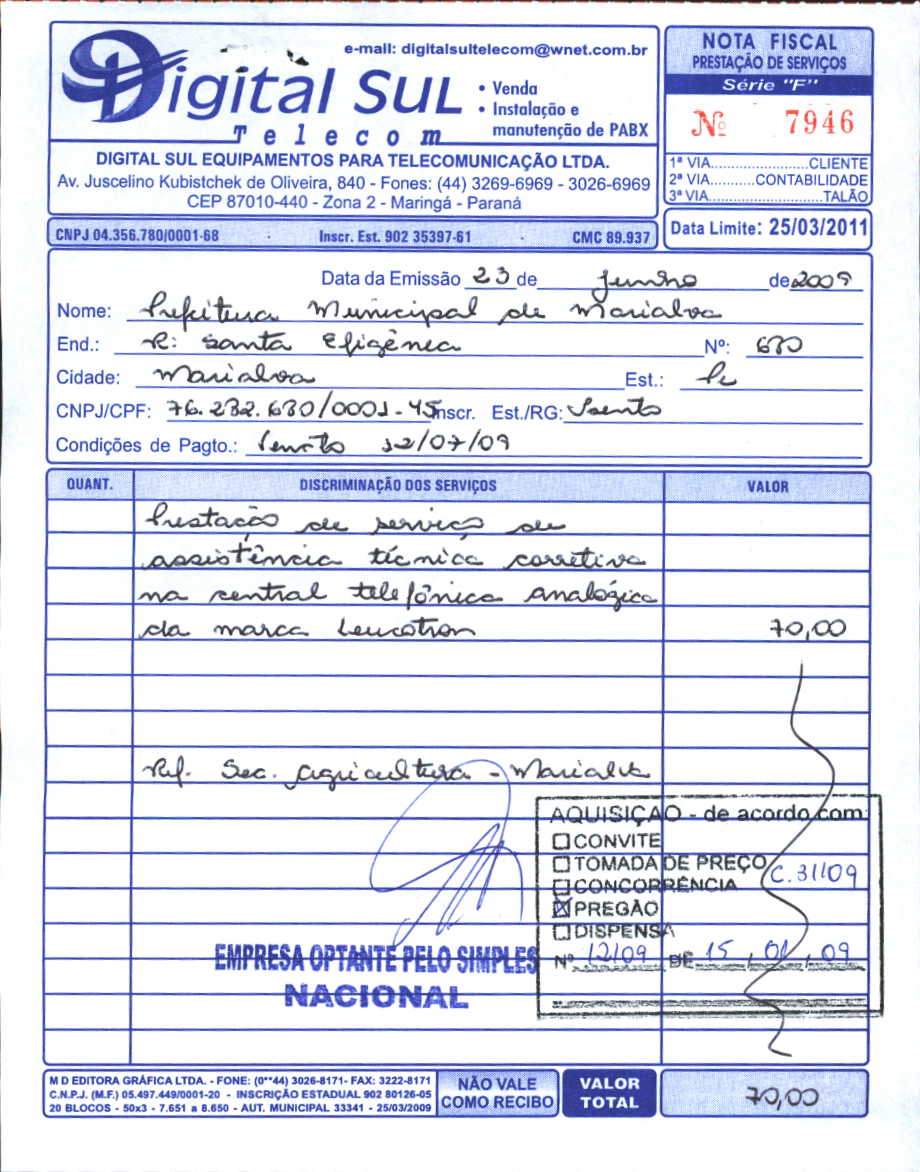 e-mail: digitalsultelecom@wnet.com.br
Digital Sul
Telecom
• Venda
• Instalação e
manutenção de PABX
DIGITAL SUL EQUIPAMENTOS PARA TELECOMUNICAÇÃO LTDA.
Av. Juscelino Kubistchek de Oliveira, 840 - Fones: (44) 3269-6969 - 3026-6969
CEP 87010-440 - Zona 2 - Maringá - Paraná
NOTA FISCAL
PRESTAÇÃO DE SERVIÇOS
Série "F"
Nº 7946
1ª VIA........................CLIENTE
2ª VIA...........CONTABILIDADE
3ª VIA............................TALÃO
CNPJ 04.356.780/0001-68 Inscr. Est. 902 35397-61 CMC 89.937
Data Limite: 25/03/2011
Data da Emissão 23 de junho de 2009
Nome: Prefeitura Municipal de Marialva
End.: R: Santa Efigênea Nº: 680
Cidade: Marialva Est.: Pr
CNPJ/CPF: 76.282.680/0001-45 Inscr. Est./RG: Isento
Condições de Pagto.: 12/07/09
QUANT. DISCRIMINAÇÃO DOS SERVIÇOS VALOR
Prestação de serviço de
assistência técnica corretiva
na central telefônica analógica
da marca Leucotron 70,00
Ref. Sec. Agricultura - Marialva
AQUISIÇÃO - de acordo com:
☐ CONVITE
☐ TOMADA DE PREÇO
C. 31/09
☐ CONCORRÊNCIA
☒ PREGÃO
☐ DISPENSA
Nº 12/09 DE 15 / 01 / 09
EMPRESA OPTANTE PELO SIMPLES
NACIONAL
M D EDITORA GRÁFICA LTDA. - FONE: (0**44) 3026-8171- FAX: 3222-8171
C.N.P.J. (M.F.) 05.497.449/0001-20 - INSCRIÇÃO ESTADUAL 902 80126-05
20 BLOCOS - 50x3 - 7.651 a 8.650 - AUT. MUNICIPAL 33341 - 25/03/2009
NÃO VALE
COMO RECIBO
VALOR
TOTAL
70,00